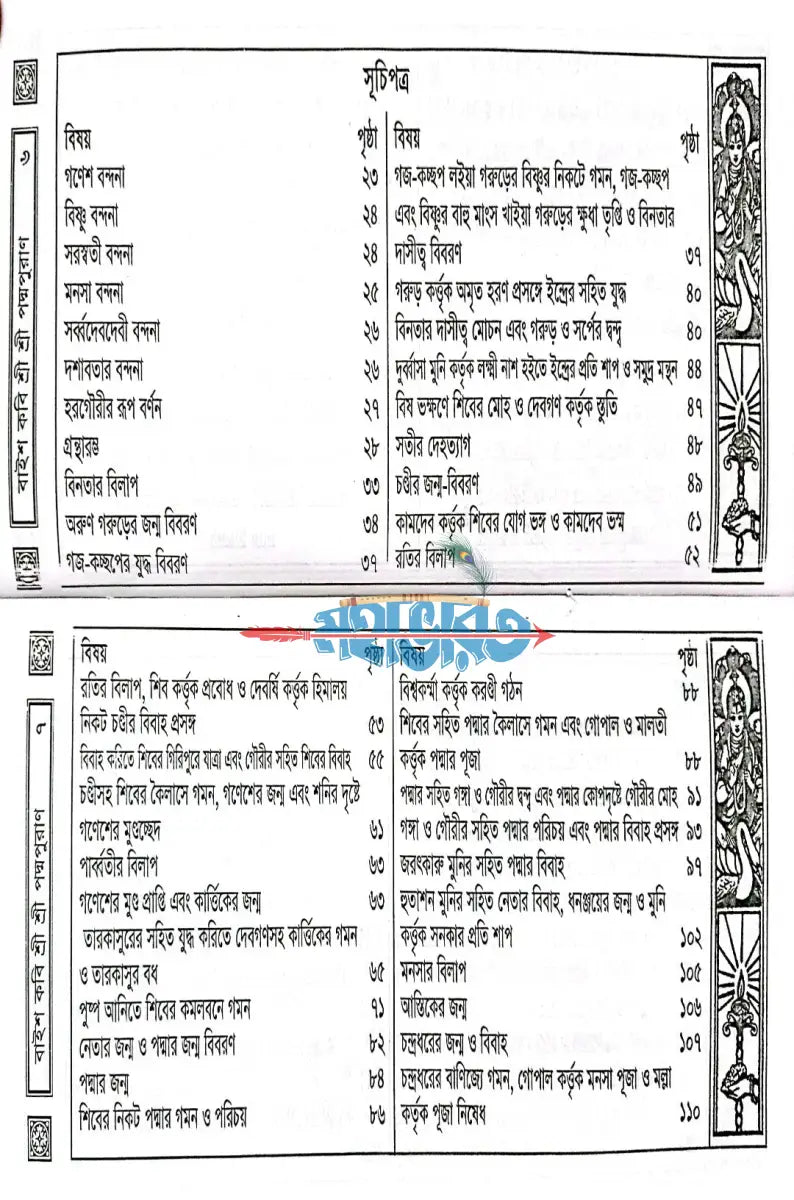 সূচিপত্র
৬
বাইশ কবি শ্রী শ্রী পদ্মপুরাণ
বিষয় পৃষ্ঠা
গণেশ বন্দনা ২৩
বিষ্ণু বন্দনা ২৪
সরস্বতী বন্দনা ২৪
মনসা বন্দনা ২৫
সর্ব্বদেবদেবী বন্দনা ২৬
দশাবতার বন্দনা ২৬
হরগৌরীর রূপ বর্ণন ২৭
গ্রন্থারম্ভ ২৮
বিনতার বিলাপ ৩৩
অরুণ গরুড়ের জন্ম বিবরণ ৩৪
গজ-কচ্ছপের যুদ্ধ বিবরণ ৩৭
বিষয় পৃষ্ঠা
গজ-কচ্ছপ লইয়া গরুড়ের বিষ্ণুর নিকটে গমন, গজ-কচ্ছপ
এবং বিষ্ণুর বাহু মাংস খাইয়া গরুড়ের ক্ষুধা তৃপ্তি ও বিনতার
দাসীত্ব বিবরণ ৩৭
গরুড় কর্ত্তৃক অমৃত হরণ প্রসঙ্গে ইন্দ্রের সহিত যুদ্ধ ৪০
বিনতার দাসীত্ব মোচন এবং গরুড় ও সর্পের দ্বন্দ্ব ৪০
দুর্ব্বাসা মুনি কর্তৃক লক্ষ্মী নাশ হইতে ইন্দ্রের প্রতি শাপ ও সমুদ্র মন্থন ৪৪
বিষ ভক্ষণে শিবের মোহ ও দেবগণ কর্তৃক স্তুতি ৪৭
সতীর দেহত্যাগ ৪৮
চণ্ডীর জন্ম-বিবরণ ৪৯
কামদেব কর্ত্তৃক শিবের যোগ ভঙ্গ ও কামদেব ভস্ম ৫১
রতির বিলাপ ৫২
মহাভারত
৭
বাইশ কবি শ্রী শ্রী পদ্মপুরাণ
বিষয় পৃষ্ঠা
রতির বিলাপ, শিব কর্ত্তৃক প্রবোধ ও দেবর্ষি কর্ত্তৃক হিমালয়
নিকট চণ্ডীর বিবাহ প্রসঙ্গ ৫৩
বিবাহ করিতে শিবের গিরিপুরে যাত্রা এবং গৌরীর সহিত শিবের বিবাহ ৫৫
চণ্ডীসহ শিবের কৈলাসে গমন, গণেশের জন্ম এবং শনির দৃষ্টে
গণেশের মুণ্ডচ্ছেদ ৬১
পার্ব্বতীর বিলাপ ৬৩
গণেশের মুণ্ড প্রাপ্তি এবং কার্ত্তিকের জন্ম ৬৩
তারকাসুরের সহিত যুদ্ধ করিতে দেবগণসহ কার্ত্তিকের গমন
ও তারকাসুর বধ ৬৫
পুষ্প আনিতে শিবের কমলবনে গমন ৭১
নেতার জন্ম ও পদ্মার জন্ম বিবরণ ৮২
পদ্মার জন্ম ৮৪
শিবের নিকট পদ্মার গমন ও পরিচয় ৮৬
বিষয় পৃষ্ঠা
বিশ্বকর্ম্মা কর্ত্তৃক করণ্ডী গঠন ৮৮
শিবের সহিত পদ্মার কৈলাসে গমন এবং গোপাল ও মালতী
কর্ত্তৃক পদ্মার পূজা ৮৮
পদ্মার সহিত গঙ্গা ও গৌরীর দ্বন্দ্ব এবং পদ্মার কোপদৃষ্টে গৌরীর মোহ ৯১
গঙ্গা ও গৌরীর সহিত পদ্মার পরিচয় এবং পদ্মার বিবাহ প্রসঙ্গ ৯৩
জরৎকারু মুনির সহিত পদ্মার বিবাহ ৯৭
হুতাশন মুনির সহিত নেতার বিবাহ, ধনঞ্জয়ের জন্ম ও মুনি
কর্ত্তৃক সনকার প্রতি শাপ ১০২
মনসার বিলাপ ১০৫
আস্তিকের জন্ম ১০৬
চন্দ্রধরের জন্ম ও বিবাহ ১০৭
চন্দ্রধরের বাণিজ্যে গমন, গোপাল কর্ত্তৃক মনসা পূজা ও মল্লা
কর্ত্তৃক পূজা নিষেধ ১১০